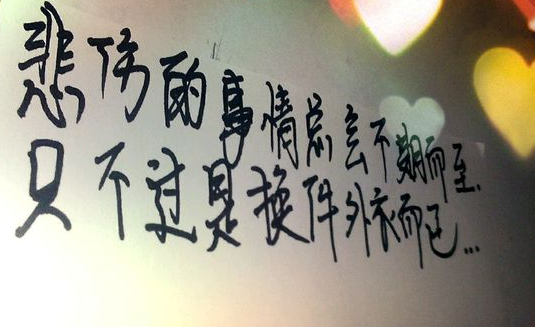 悲伤的事情总会不期而至.
只不过是换件外衣而已...